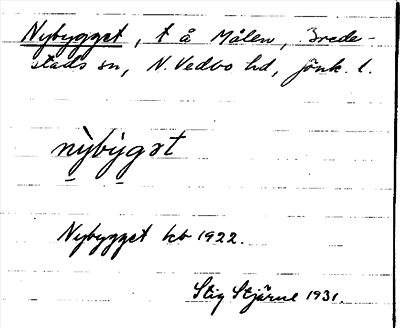 Nybygget, t å Målen, Brede-
stads sn, N. Vedbo hd, Jönk. l.
nỳbỳgət
Nybygget kb 1922.
Stig Stjärne 1931.